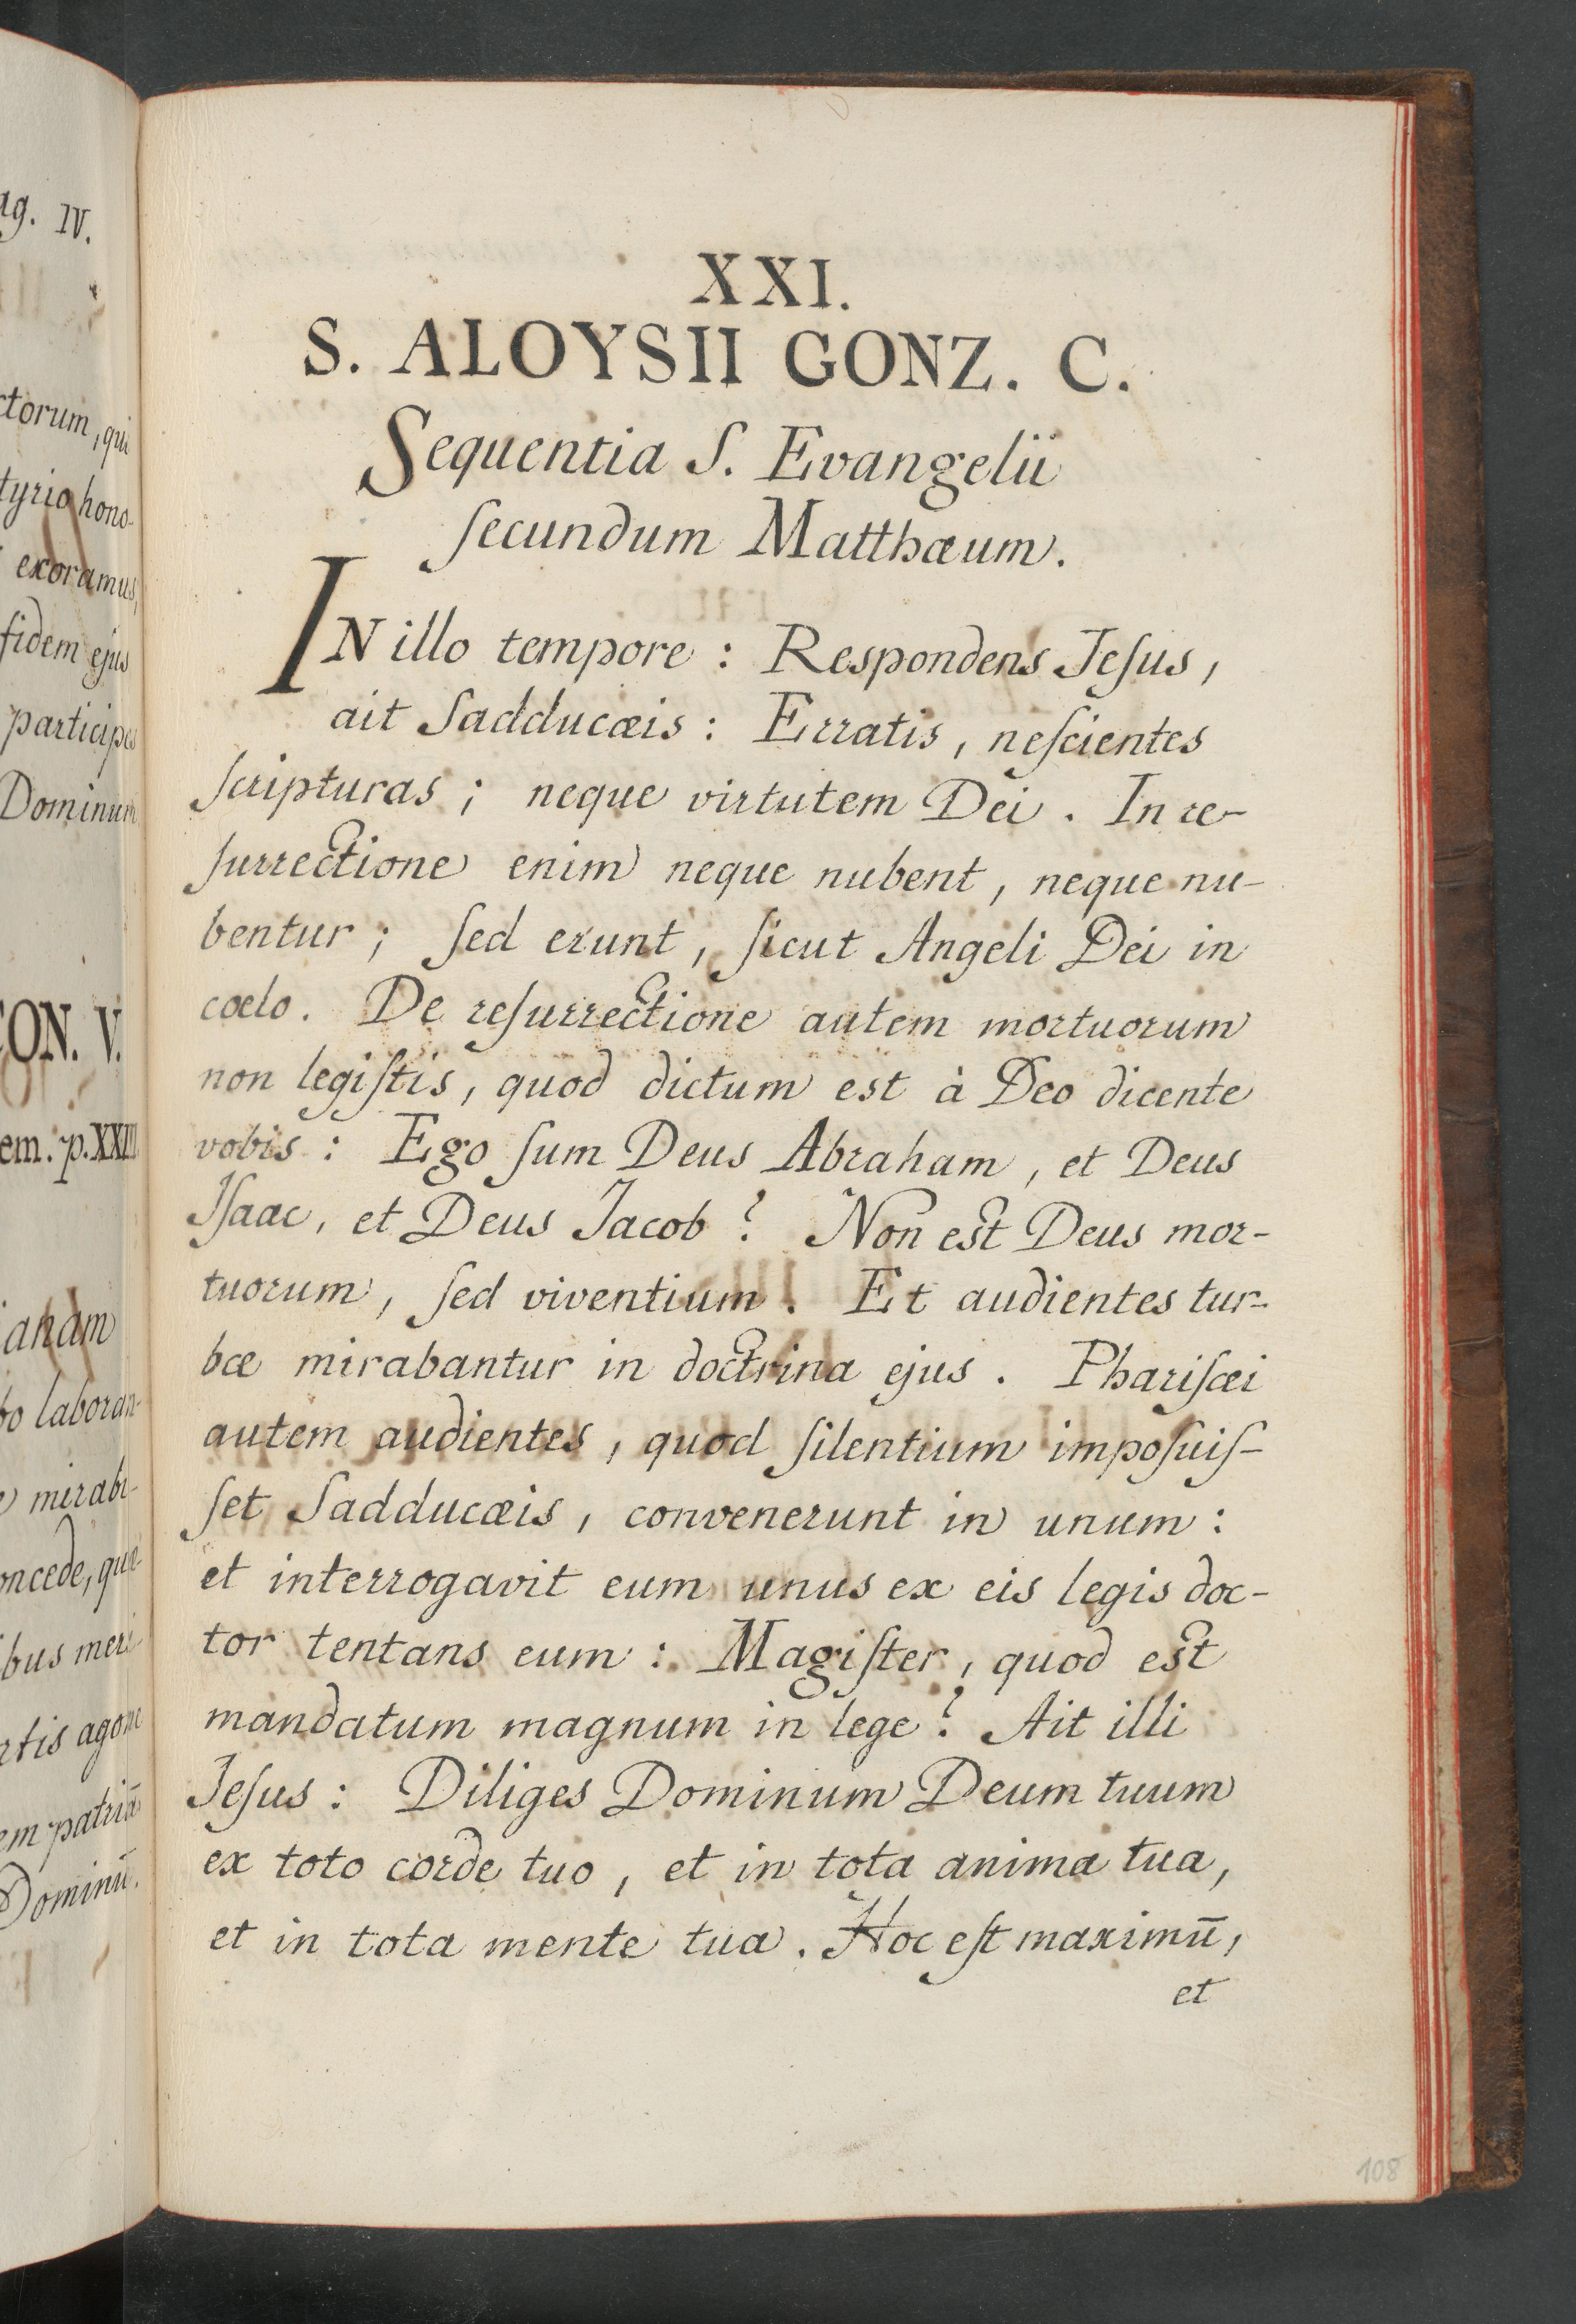 ag. IV.
ctorum, qui
tyrio hono-
exoramus,
fidem ejus
participes
Dominum
ON. V.
em. p. XXIII
aham
bo laboran-
mirabi-
oncede, quæ-
bus meri
rtis agone
em patriā
Dominū.
XXI.
S. ALOYSII GONZ. C.
Sequentia S. Evangelii
ſecundum Matthæum.
IN illo tempore : Respondens Jeſus,
ait Sadducæis : Erratis, neſcientes
ſcripturas ; neque virtutem Dei. In re-
ſurrectione enim neque nubent, neque nu-
bentur ; ſed erunt, ſicut Angeli Dei in
cœlo. De reſurrectione autem mortuorum
non legiſtis, quod dictum est à Deo dicente
vobis : Ego ſum Deus Abraham, et Deus
Iſaac, et Deus Jacob ? Non est Deus mor-
tuorum, ſed viventium. Et audientes tur-
bæ mirabantur in doctrina ejus. Phariſæi
autem audientes, quod ſilentium impoſuiſ-
ſet Sadducæis, convenerunt in unum :
et interrogavit eum unus ex eis legis doc-
tor tentans eum : Magiſter, quod est
mandatum magnum in lege ? Ait illi
Jeſus : Diliges Dominum Deum tuum
ex toto corde tuo, et in tota anima tua,
et in tota mente tua. Hoc eſt maximū,
et
108